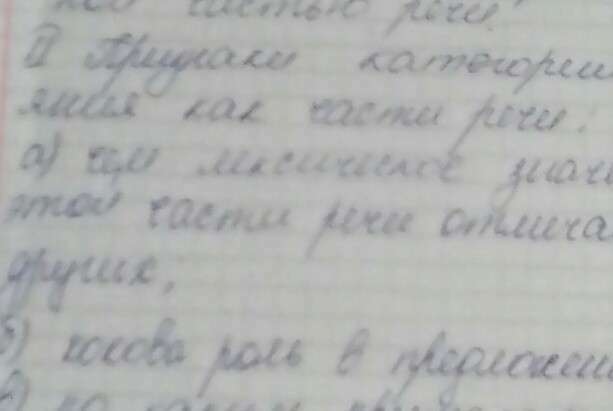 частью речи.
II Признаки категории
яния как части речи:
а) чем лексическое знач
этой части речи отлича
других,
б) какова роль в предложени
в) по каким